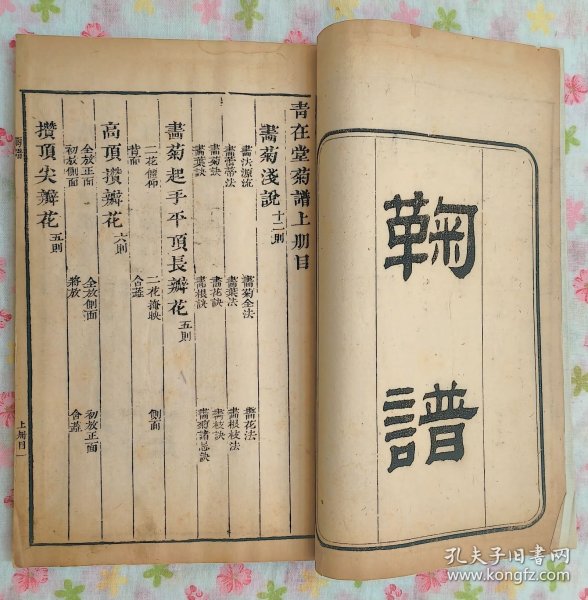 鞠譜
青在堂菊譜上册目
畫菊淺說 十二則
畫法源流 畫菊全法 畫花法
畫蕾蒂法 畫葉法 畫根枝法
畫菊訣 畫花訣 畫枝訣
畫葉訣 畫根訣 畫菊諸忌訣
畫菊起手平頂長瓣花 五則
二花俯仰 二花掩映 側面
背面 含蕊
高頂攢瓣花 六則
全放正面 全放側面 初放正面
初放側面 將放 含蕊
攢頂尖瓣花 五則
上册目 一
孔夫子旧书网
www.kongfz.com